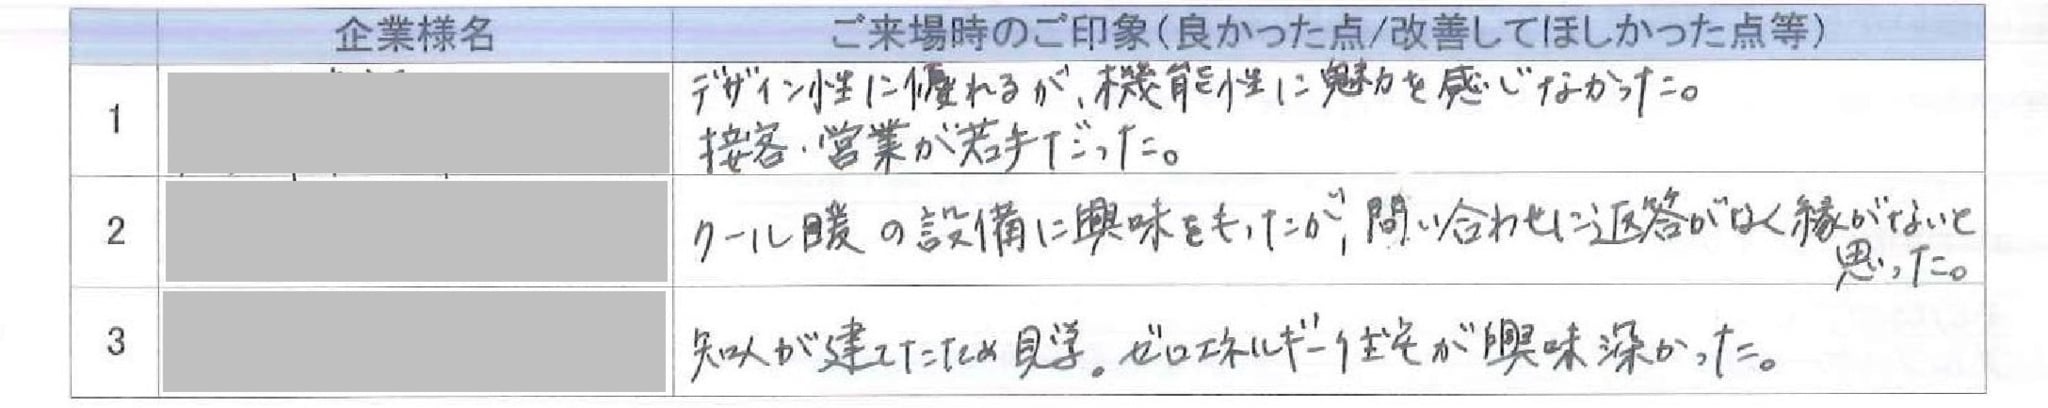 企業様名 ご来場時のご印象(良かった点/改善してほしかった点等)
1 デザイン性に優れるが、機能性に魅力を感じなかった。
接客・営業が若手だった。
2 クール暖の設備に興味をもったが、問い合わせに返答がなく縁がないと
思った。
3 知人が建てたため見学。ゼロエネルギー住宅が興味深かった。